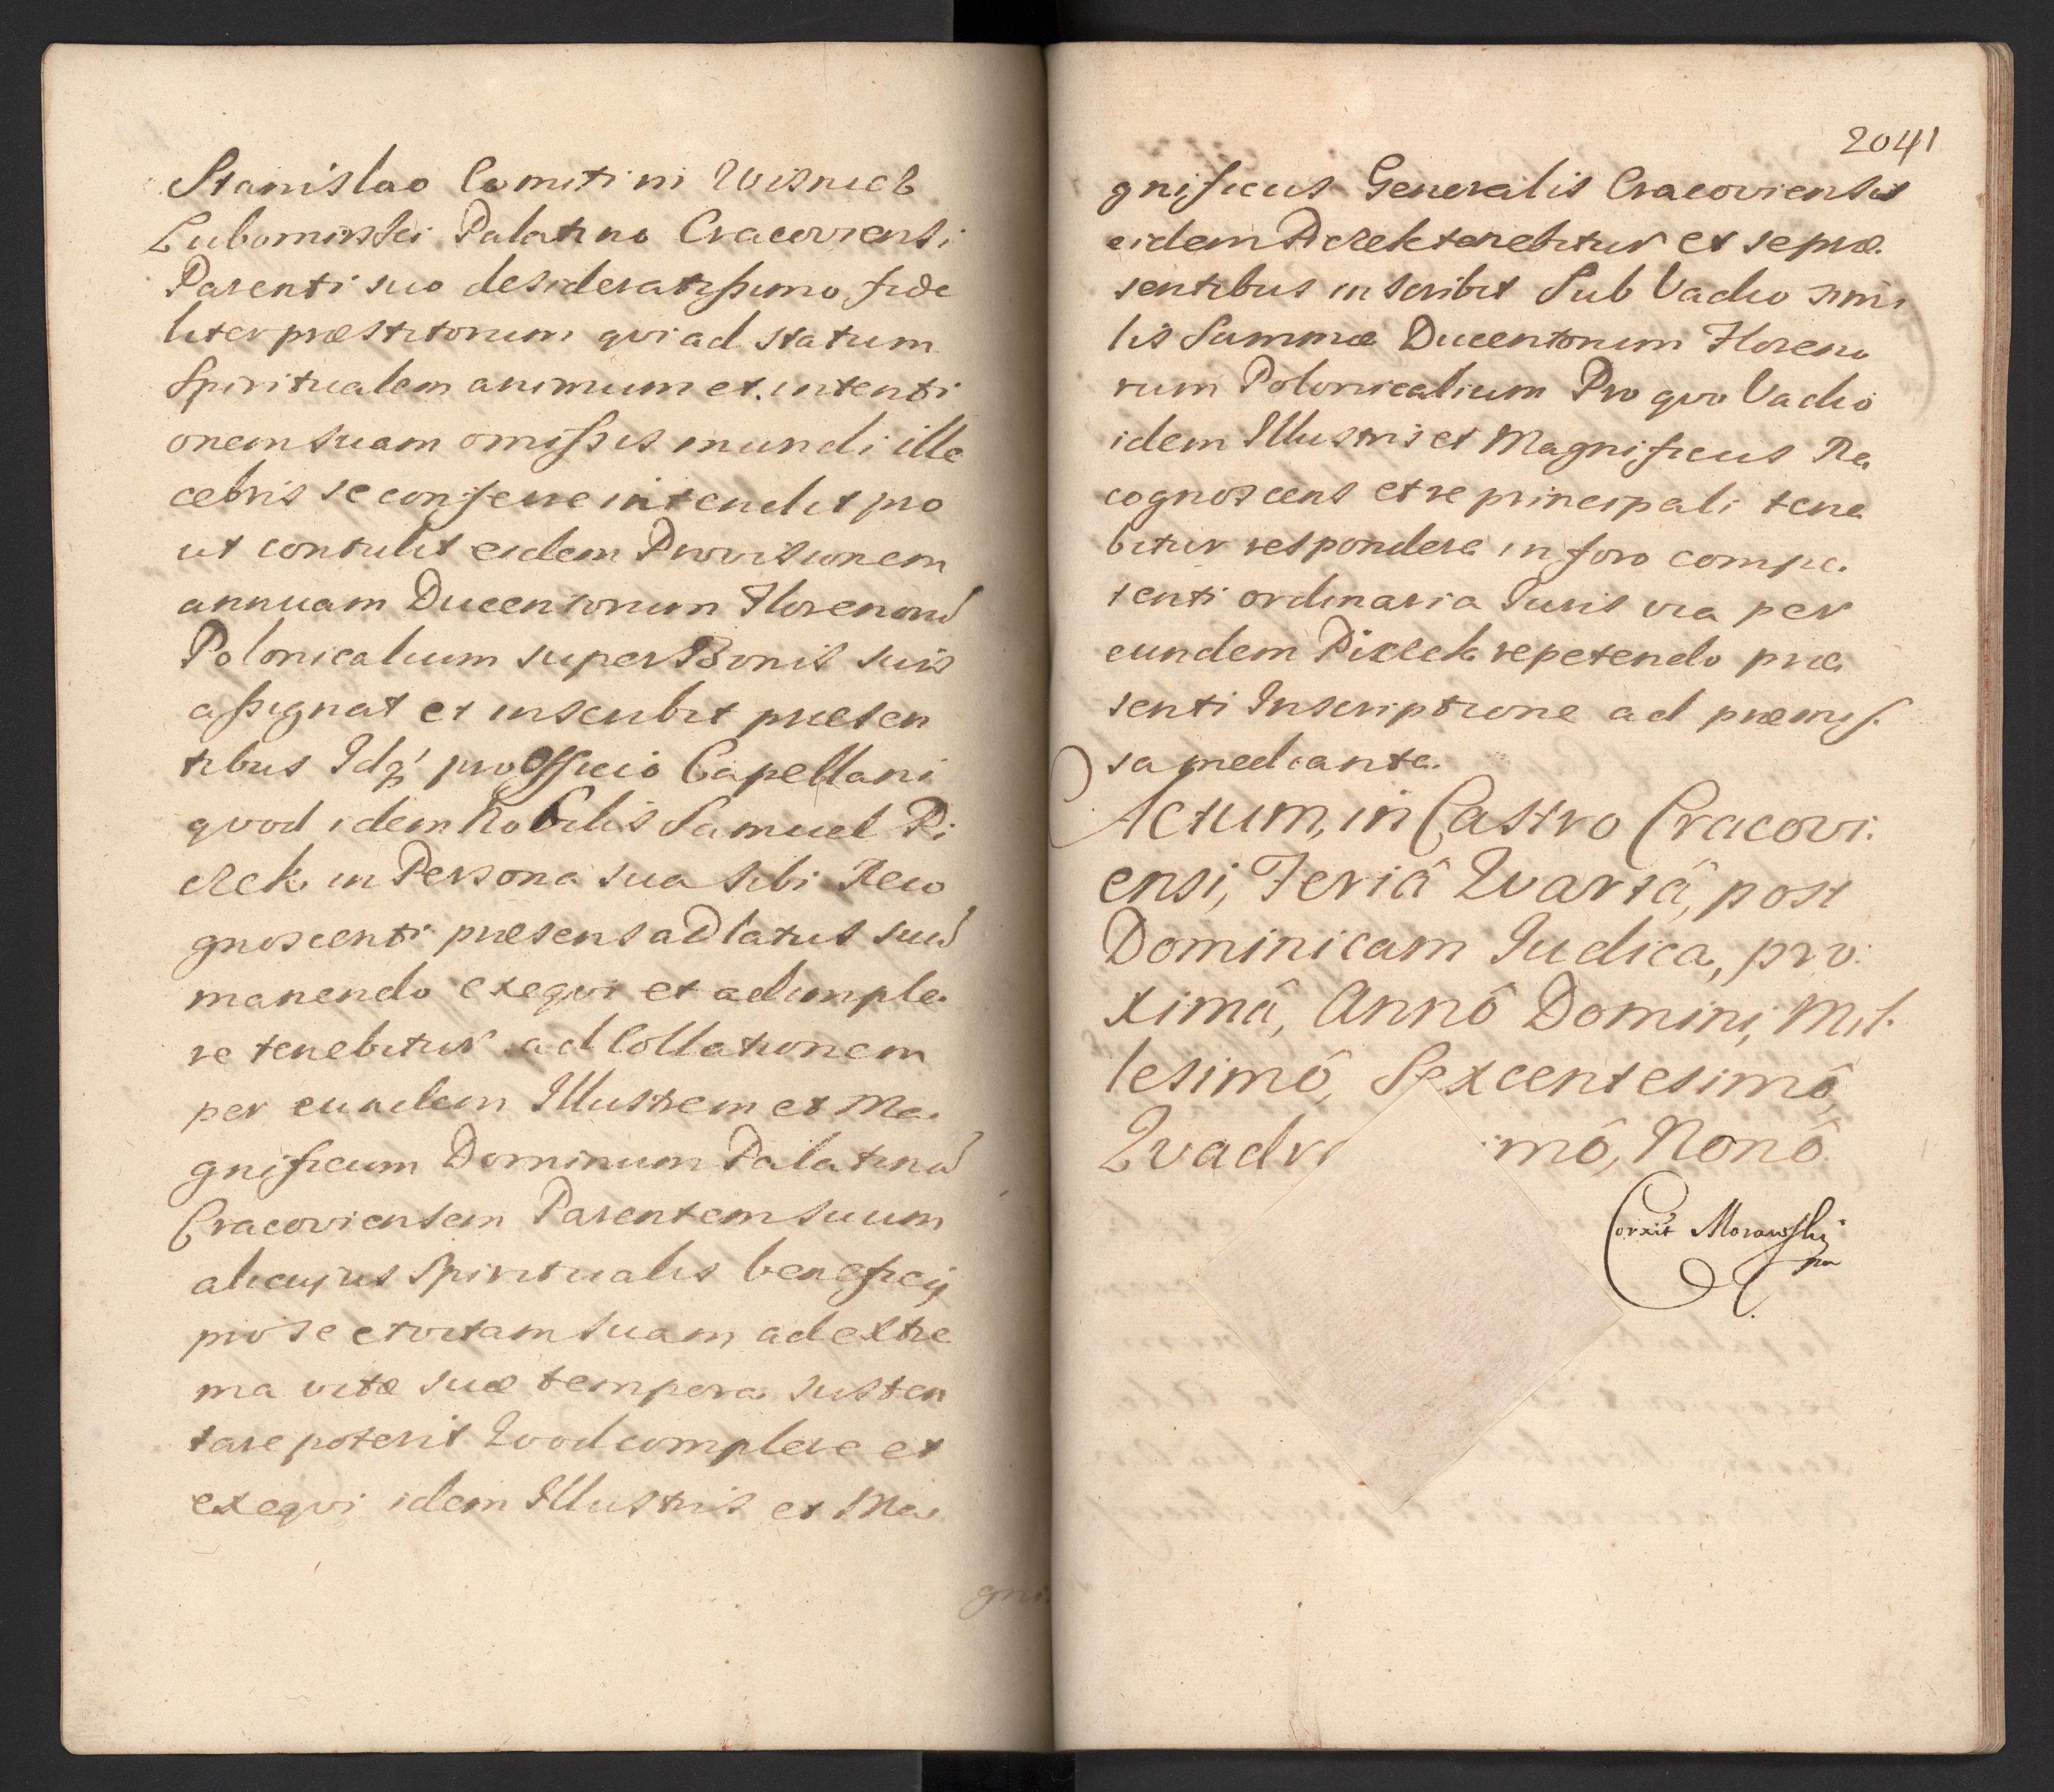 Stanislao Comiti in Wisnicb
Lubomirski Palatino Cracoviensi
Parenti suo desideratissimo fide
liter præstitorum qvi ad statum
Spiritualem animum et intenti
onem suam omissis mundi ille
cebris se conferre intendit pro
ut contulit eidem Provisionem
annuam Ducentorum Florenorū
Polonicalium super Bonis suis
assignat et inscribit præsen
tibus Idq pro Officio Capellani
qvod idem Nobilis Samuel Pi
erek in Persona sua sibi Reco
gnoscenti præsens ad latus suū
manendo exeqvi et adimple
re tenebitur ad Collationem
per eundem Illustrem et Ma
gnificum Dominum Palatinū
Cracoviensem Parentem suum
alicujus Spiritualis beneficij
pro se et vitam suam ad extre
ma vitæ suæ tempora susten
tare poterit Qvod complere et
exeqvi idem Illustris et Ma
gni
2041
gnificus Generalis Cracoviensis
eidem Pierek tenebitur et se præ
sentibus inscribit Sub Vadio simi
lis Summæ Ducentorum Floreno
rum Polonicalium Pro qvo Vadio
idem Illustris et Magnificus Re
cognoscens et re principali tene
bitur respondere in foro compe
tenti ordinaria Juris via per
eundem Pierek repetendo præ
senti Inscriptione ad præmis
sa mediante.
Actum, in Castro Cracovi
ensi, Feriâ Qvartâ, post
Dominicam Judica, pro
ximâ, Annô Domini, Mil
lesimô, Sexcentesimô,
Qvadr mô, Nonô.
Corxit Morawski
mp